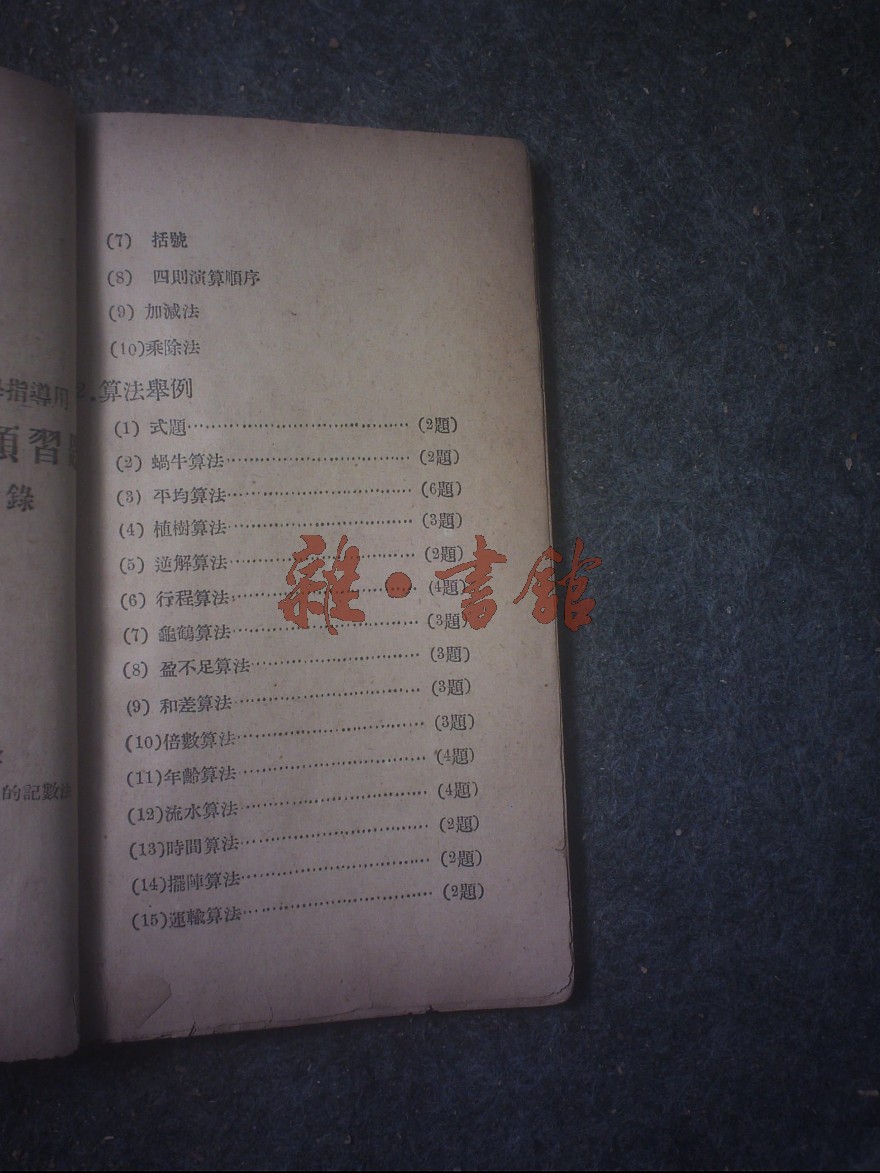 (7) 括號
(8) 四則演算順序
(9) 加減法
(10)乘除法
指導用
習
錄
的記數法
2.算法舉例
(1) 式題 (2題)
(2) 蝸牛算法 (2題)
(3) 平均算法 (6題)
(4) 植樹算法 (3題)
(5) 逆解算法 (2題)
(6) 行程算法 (4題)
(7) 龜鶴算法 (3題)
(8) 盈不足算法 (3題)
(9) 和差算法 (3題)
(10)倍數算法 (3題)
(11)年齡算法 (4題)
(12)流水算法 (4題)
(13)時間算法 (2題)
(14)擺陣算法 (2題)
(15)運輸算法 (2題)
雜·書館